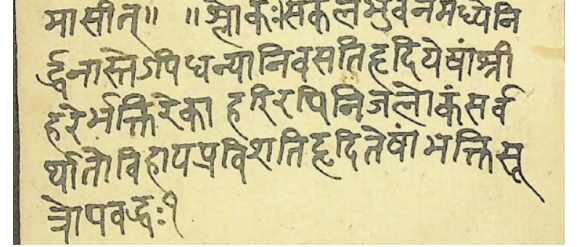 मासीत्॥ ॥श्लोकः॥सकलभुवनमध्येनि
र्द्धनास्तेऽपिधन्यानिवसतिहृदियेषांश्री
हरेर्भक्तिरेका हरिरपिनिजलोकंसर्व
र्थातोविहायप्रविशतिहृदितेषांभक्तिसू
त्रोपवद्धः१